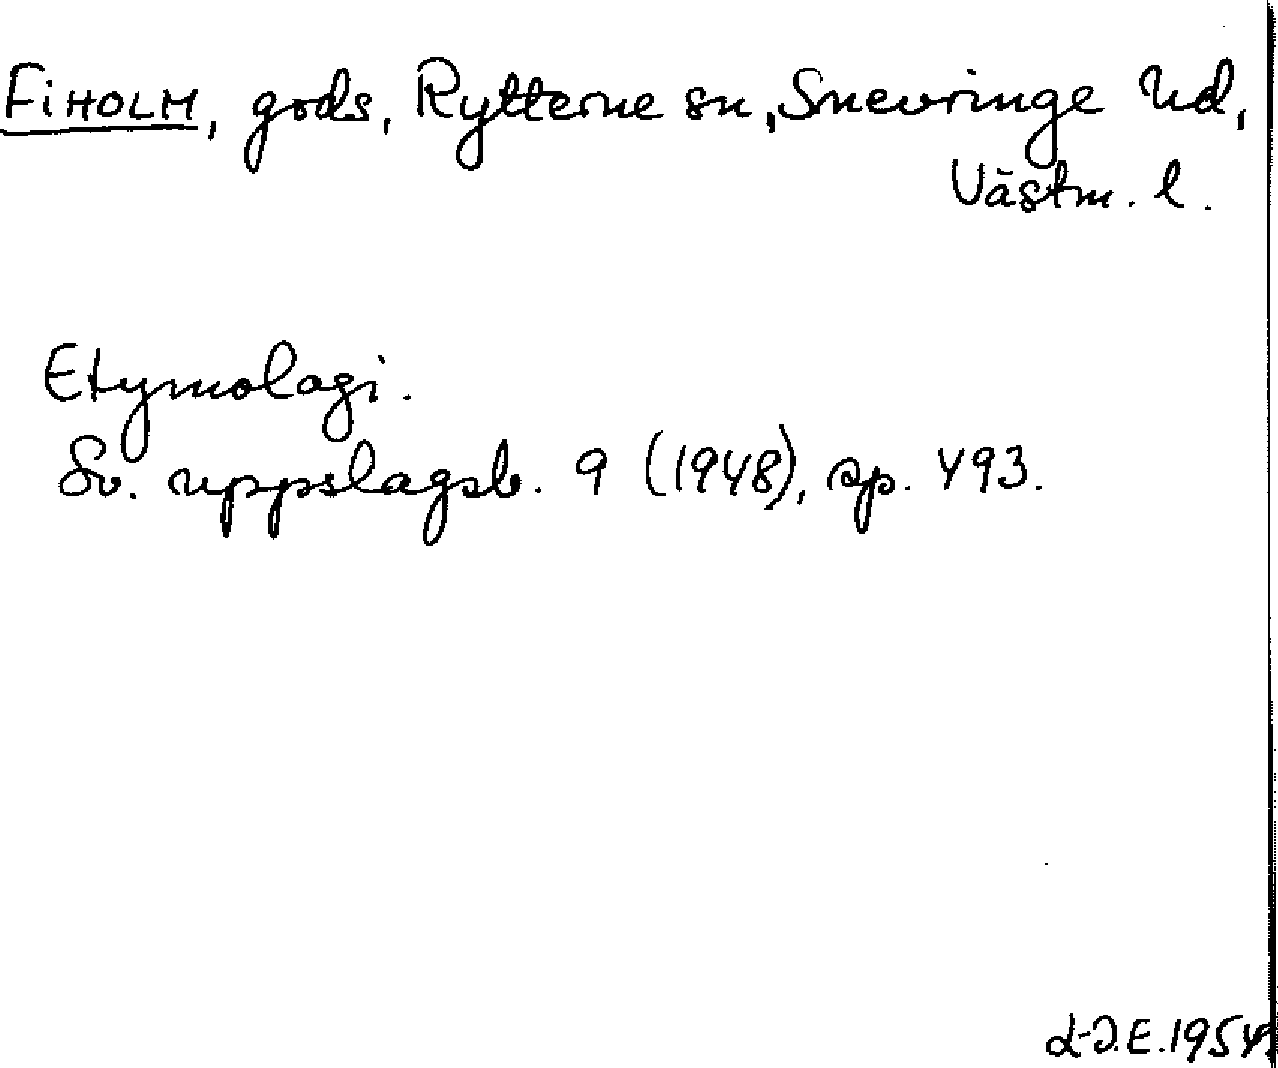 FiHOLM, gods, Rytterne sn, Snevringe hd,
Västm. l.
Etymologi.
Sv. uppslagsb. 9 (1948), sp. 493.
L-O.E. 1954